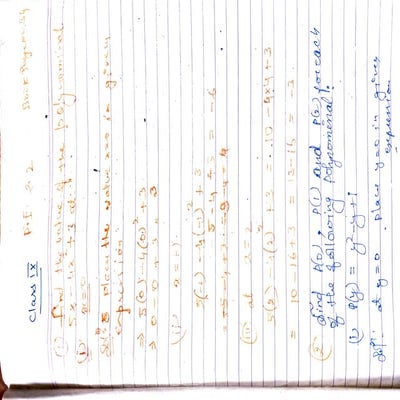 Class IX
P.E. 2.2
① find the value of the polynomial
5x - 4x² + 3 at
(i) x=0
place the value x=0 in given
expression
⇒ 5(0) - 4(0)² + 3
⇒ 0 - 0 + 3 = 3
(ii) x = -1
5(-1) - 4(-1)² + 3
-5 - 4 + 3 = -6
(iii) at x = 2
5(2) - 4(2)² + 3 = 10 - 4×4 + 3
= 10 - 16 + 3 = 13 - 16 = -3
② find P(0), P(1) and P(2) for each
of the following polynomial:
(i) P(y) = y² - y + 1
at y=0 place y=0 in given
expression